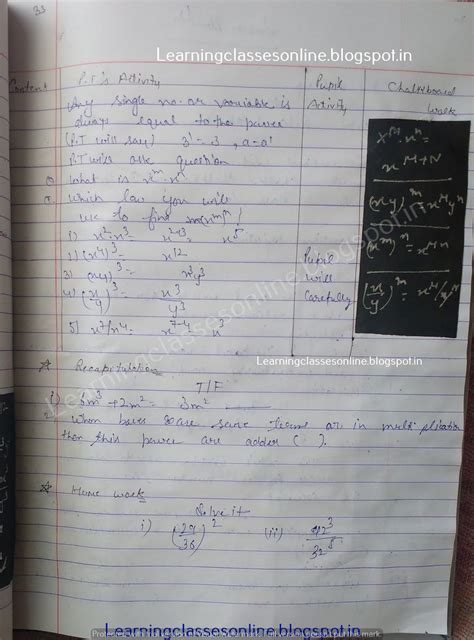 33
Learningclassesonline.blogspot.in
Content
P.T's Activity
Pupil
Activity
Chalkboard
Walk
Any single no. or variable is
always equal to the power
(P.T will say) 3¹ = 3, a = a¹
P.T will ask question
What is xᵐ·xⁿ
Which law you will
use to find
1) x²·x³ = x²⁺³ = x⁵
2) (x⁴)³ = x¹²
3) (xy)³ = x³y³
4) (x/y)³ = x³/y³
5) x⁷/x⁴ = x⁷⁻⁴ = x³
Pupil
will
carefully
xᴹ·xⁿ =
xᴹ⁺ᴺ
(xy)ᵐ = xᴹyᵐ
(xᵐ)ⁿ = xᴹⁿ
(x/y)ᵐ = xᴹ/yᵐ
Learningclassesonline.blogspot.in
Learningclassesonline.blogspot.in
☆ Recapitulation
T/F
1) 6m³ + 2m² = 3m²
When bases are same terms are in multiplication
then this power are adder ( ).
☆ Home work
Solve it
i) (29/36)² (ii) 42³/32⁵
Learningclassesonline.blogspot.in